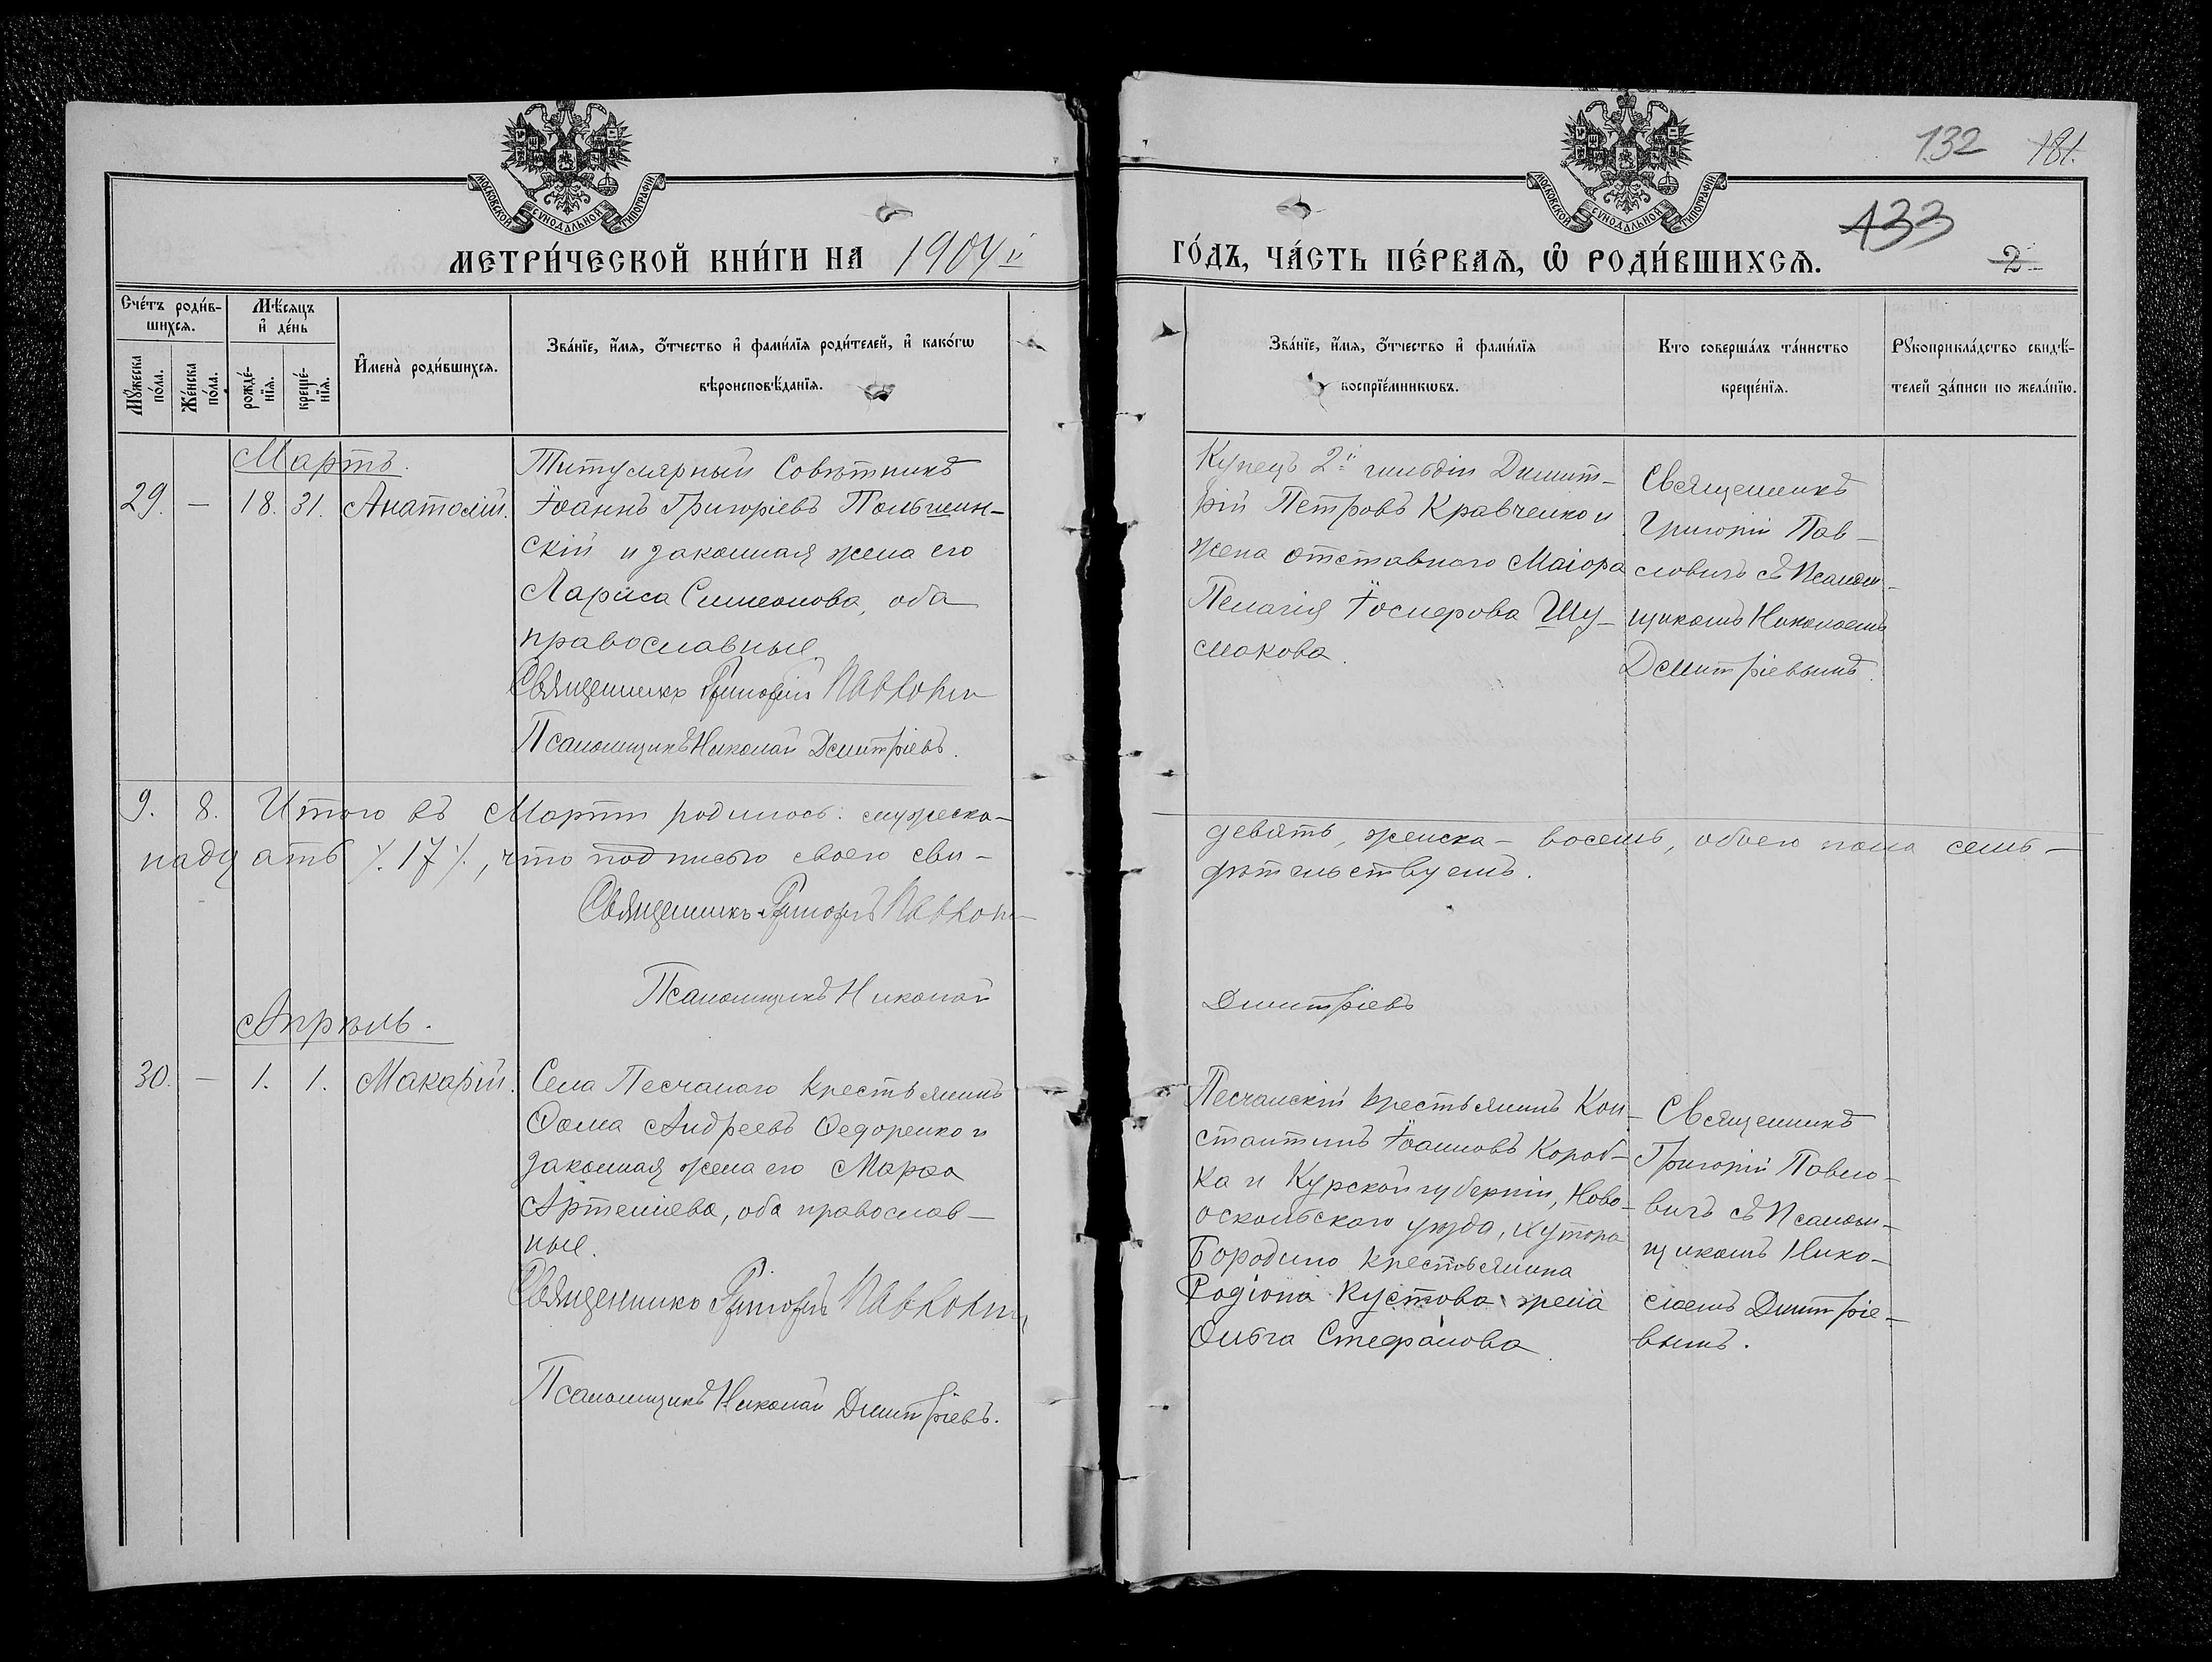 132 181.
133
2
МОСКОВСКОЙ СѴНОДАЛЬНОЙ ТИПОГРАФІИ
МОСКОВСКОЙ СѴНОДАЛЬНОЙ ТИПОГРАФІИ
МЕТРИ́ЧЕСКОЙ КНИ́ГИ НА 1904й
ГО́ДЪ, ЧА́СТЬ ПЕ́РВАѦ, Ѡ҆ РОДИ́ВШИХСѦ.
Сче́тъ роди́в-
шихсѧ.
Мꙋ́жеска по́ла.
Же́нска по́ла.
Мѣ́сѧцъ
и҆ де́нь
рожде́-
нїѧ.
креще́-
нїѧ.
И҆мена̀ роди́вшихсѧ.
Зва́нїе, и҆́мѧ, ѻ҆́тчество и҆ фами́лїѧ роди́телей, и҆ како́гѡ
вѣроисповѣ́данїѧ.
Зва́нїе, и҆́мѧ, ѻ҆́тчество и҆ фами́лїѧ
воспрїе́мникѡвъ.
Кто соверша́лъ та́инство
креще́нїѧ.
Рꙋкоприкла́дство свидѣ́-
телей за́писи по жела́нїю.
Мартъ.
29. — 18. 31. Анатолій.
Титулярный Совѣтникъ
Іоаннъ Григоріевъ Польшин-
скій и законная жена его
Лариса Симеонова, оба
православные.
Священникъ Григорій Павловичъ
Псаломщикъ Николай Дмитріевъ.
Купецъ 2й гильдіи Димит-
рій Петровъ Кравченко и
жена отставного Маіора
Пелагія Іосифова Шу-
макова.
Священникъ
Григорій Пав-
ловичъ съ Псалом-
щикомъ Николаемъ
Дмитріевымъ.
9. 8. Итого въ Мартѣ родилось: мужеска-
девять, женска - восемь, обоего пола семь-
надцать ⁒17⁒, что подписью своею сви-
дѣтельствуемъ.
Священникъ Григорій Павлович
Псаломщикъ Николай
Дмитріевъ
Апрѣль.
30. — 1. 1. Макарій.
Села Песчаного крестьянинъ
Ѳома Андреевъ Ѳедоренко и
законная жена его Марѳа
Артеміева, оба православ-
ные.
Священникъ Григорій Павлович
Псаломщикъ Николай Дмитріевъ.
Песчанскій крестьянинъ Кон-
стантинъ Іоанновъ Короб-
ка и Курской губерніи, Ново-
оскольскаго уѣзда, хутора
Бородино крестьянина
Родіона Кустова жена
Ольга Стефанова.
Священникъ
Григорій Павло-
вичъ съ Псалом-
щикомъ Нико-
лаемъ Дмитріе-
вымъ.